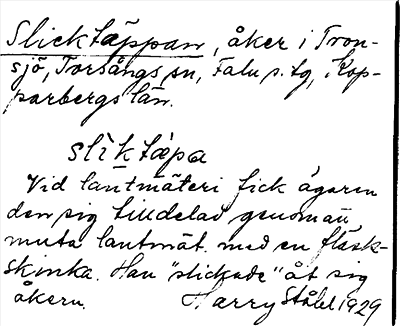 Slicktäppan, åker i Tron-
sjö, Torsångs sn, Falu s. tg, Kop-
parbergs län.
sliktäpa
Vid lantmäteri fick ägaren
den sig tilldelad genom att
muta lantmät. med en fläsk-
skinka. Han "slickade" åt sig
åkern.
Harry Ståhl 1929